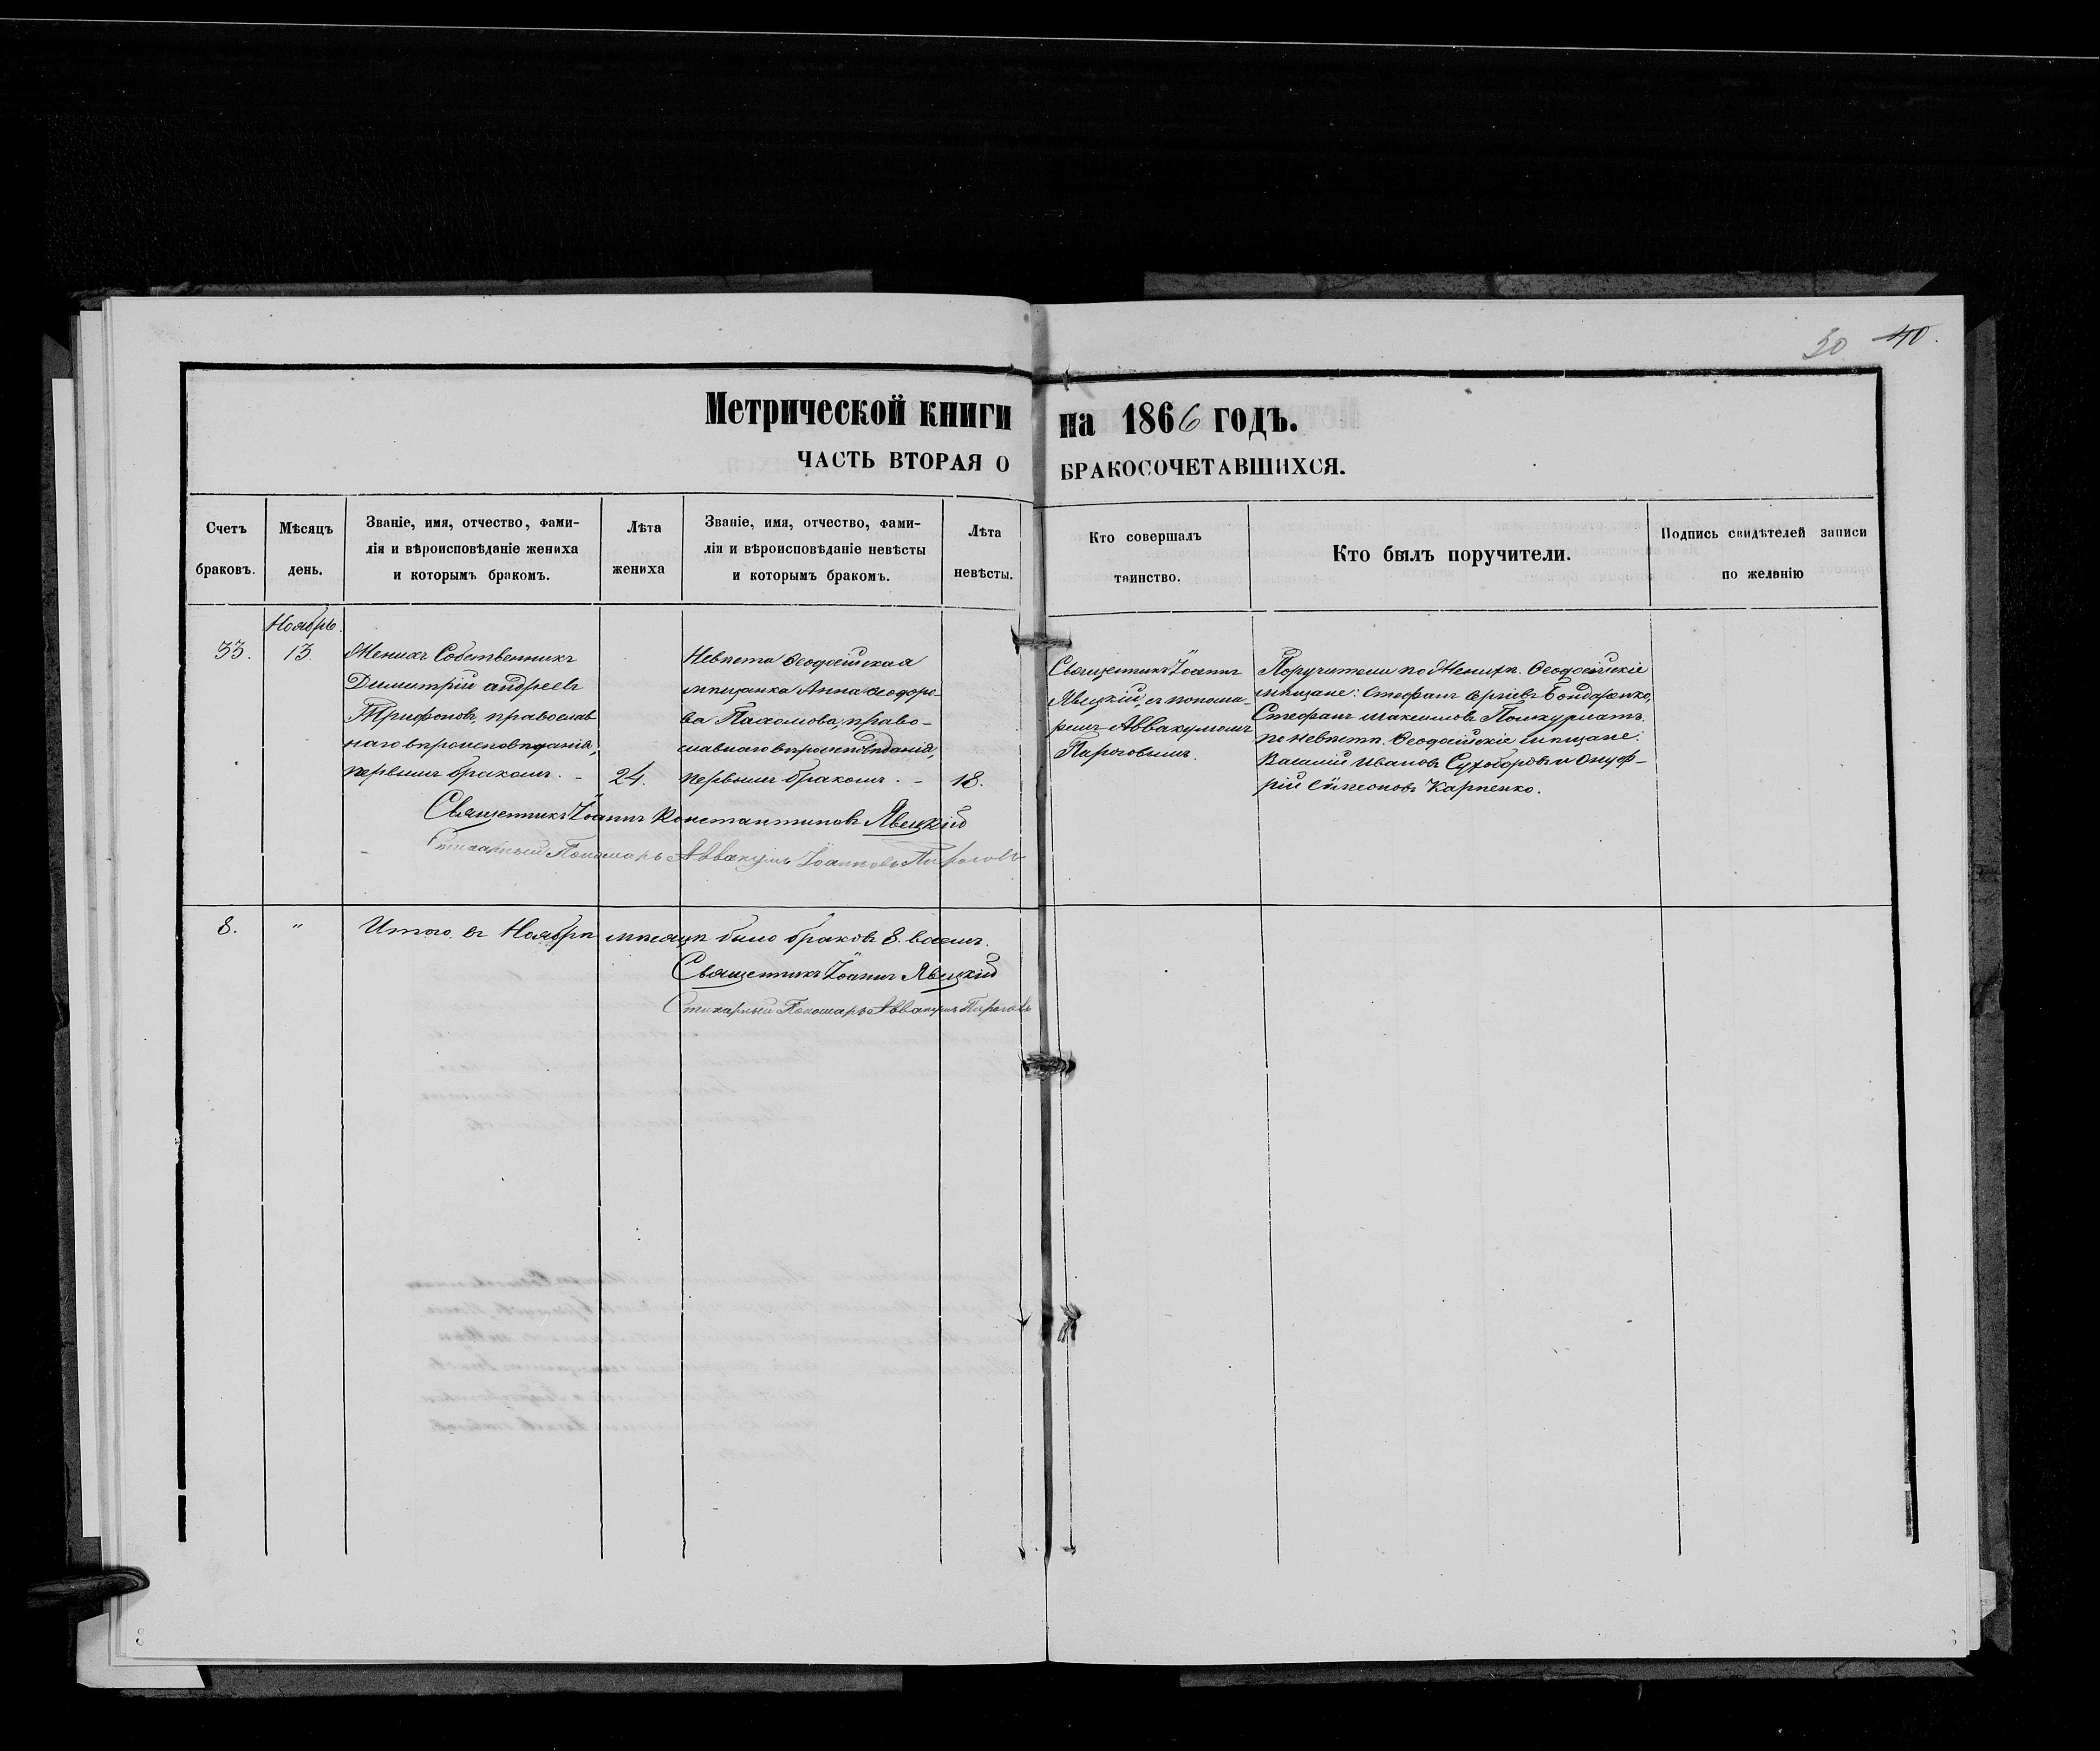 50 40.
Метрической книги на 1866 годъ.
ЧАСТЬ ВТОРАЯ О БРАКОСОЧЕТАВШИХСЯ.
Счетъ
браковъ.
Мѣсяцъ
день.
Званіе, имя, отчество, фами-
лія и вѣроисповѣданіе жениха
и которымъ бракомъ.
Лѣта
жениха
Званіе, имя, отчество, фами-
лія и вѣроисповѣданіе невѣсты
и которымъ бракомъ.
Лѣта
невѣсты.
Кто совершалъ
таинство.
Кто былъ поручители.
Подпись свидѣтелей записи
по желанію
Ноябрь.
33.
13.
Женихъ Собственникъ
Димитрій Андреевъ
Трифоновъ, православ
наго вѣроисповѣданія,
первымъ бракомъ. –
24.
Невѣста Ѳеодосійская
мѣщанка Анна Ѳеодоро-
ва Пахомова, право-
славнаго вѣроисповѣданія,
первымъ бракомъ. –
18.
Священникъ Іоаннъ
Явецкій, съ понома-
ремъ Аввакумомъ
Пироговымъ.
Поручители по Женихѣ. Ѳеодосійскіе
мѣщане: Стефанъ Сергіевъ Бондаренко,
Стефанъ Максимовъ
по невѣстѣ. Ѳеодосійскіе мѣщане:
Василій Ивановъ Сухоборовъ и Онуф-
рій Симеоновъ Карпенко.
Священникъ Іоаннъ Константиновъ Явецкій
Стихарный Пономарь Аввакумъ Іоанновъ Пироговъ
8.
"
Итого въ Ноябрѣ мѣсяцѣ было браковъ 8. восемь.
Священникъ Іоаннъ Явецкій
Стихарный Пономарь Аввакумъ Пироговъ